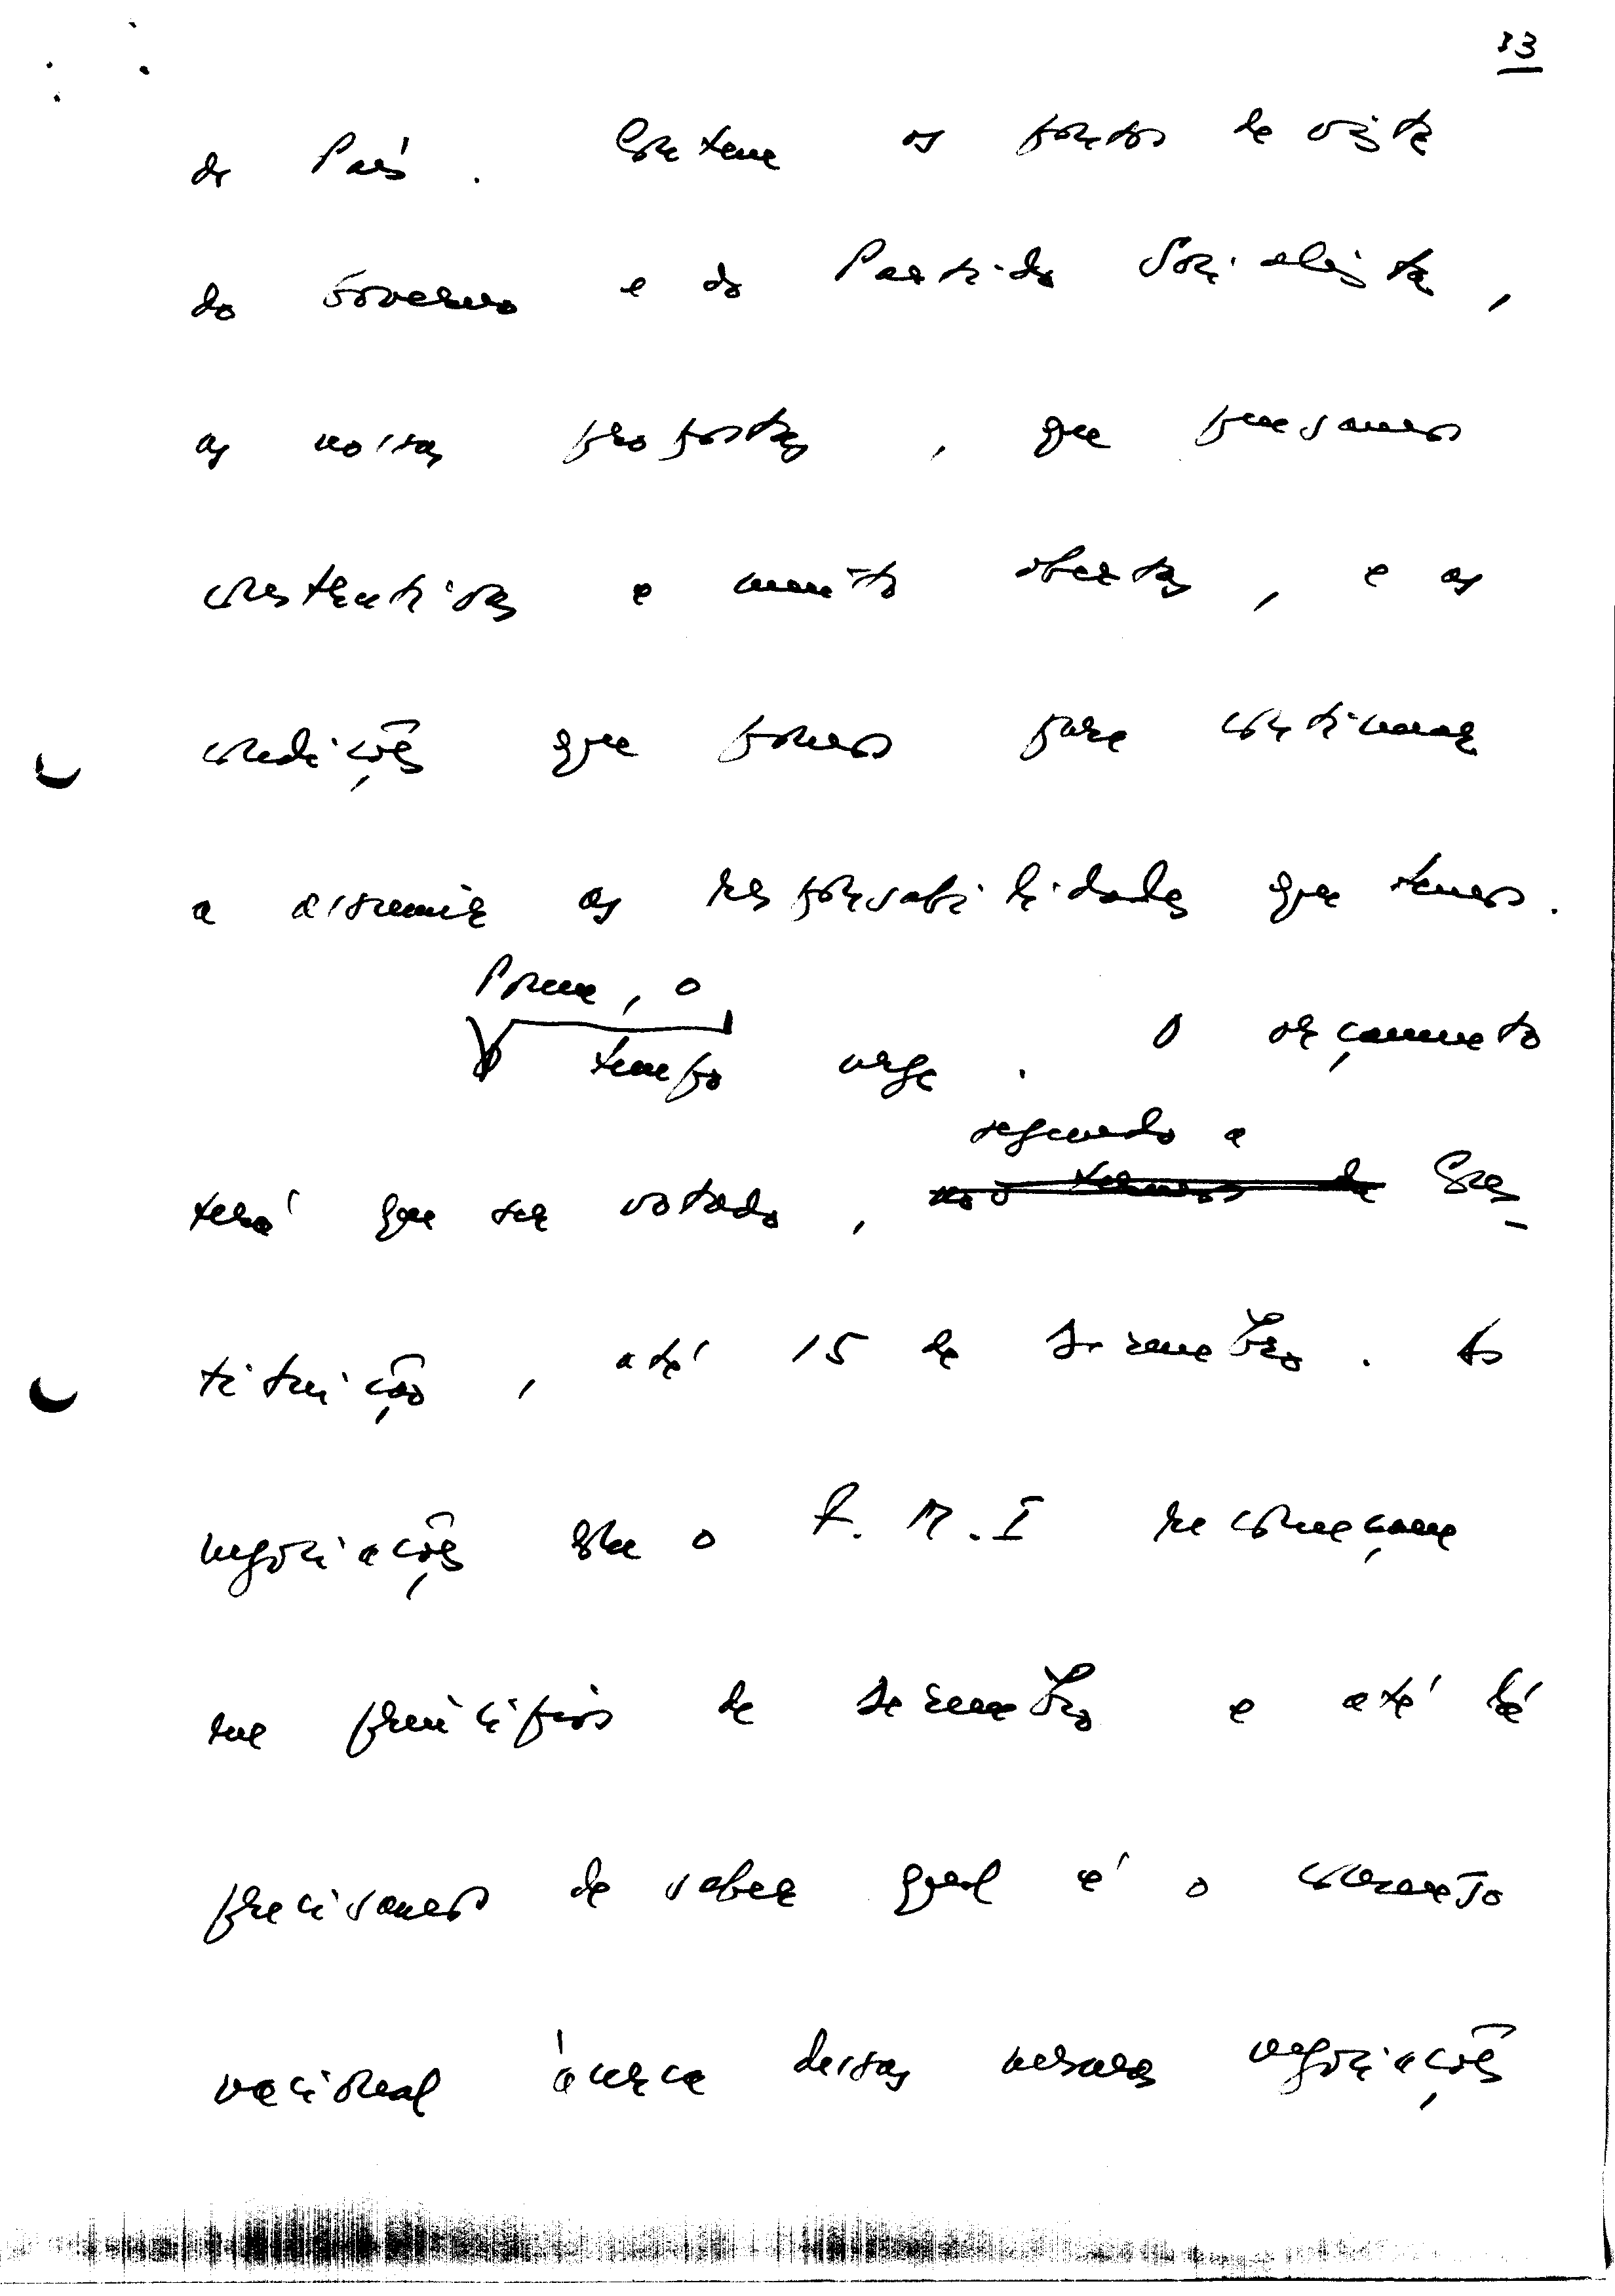 13
do País. Contem os pontos de vista
do Governo e do Partido Socialista,
as nossas propostas, que pensamos
construtivas e muito abertas, e as
condições que pomos para continuar
a assumir as responsabilidades que temos.
Porem, o
tempo urge. O orçamento
segundo a
terá que ser votado, nos termos da Cons-
tituição, até 15 de Dezembro. As
negociações com o F.M.I recomeçam
em princípios de Dezembro e até lá
precisamos de saber qual é o consenso
nacional àcerca dessas mesmas negociações